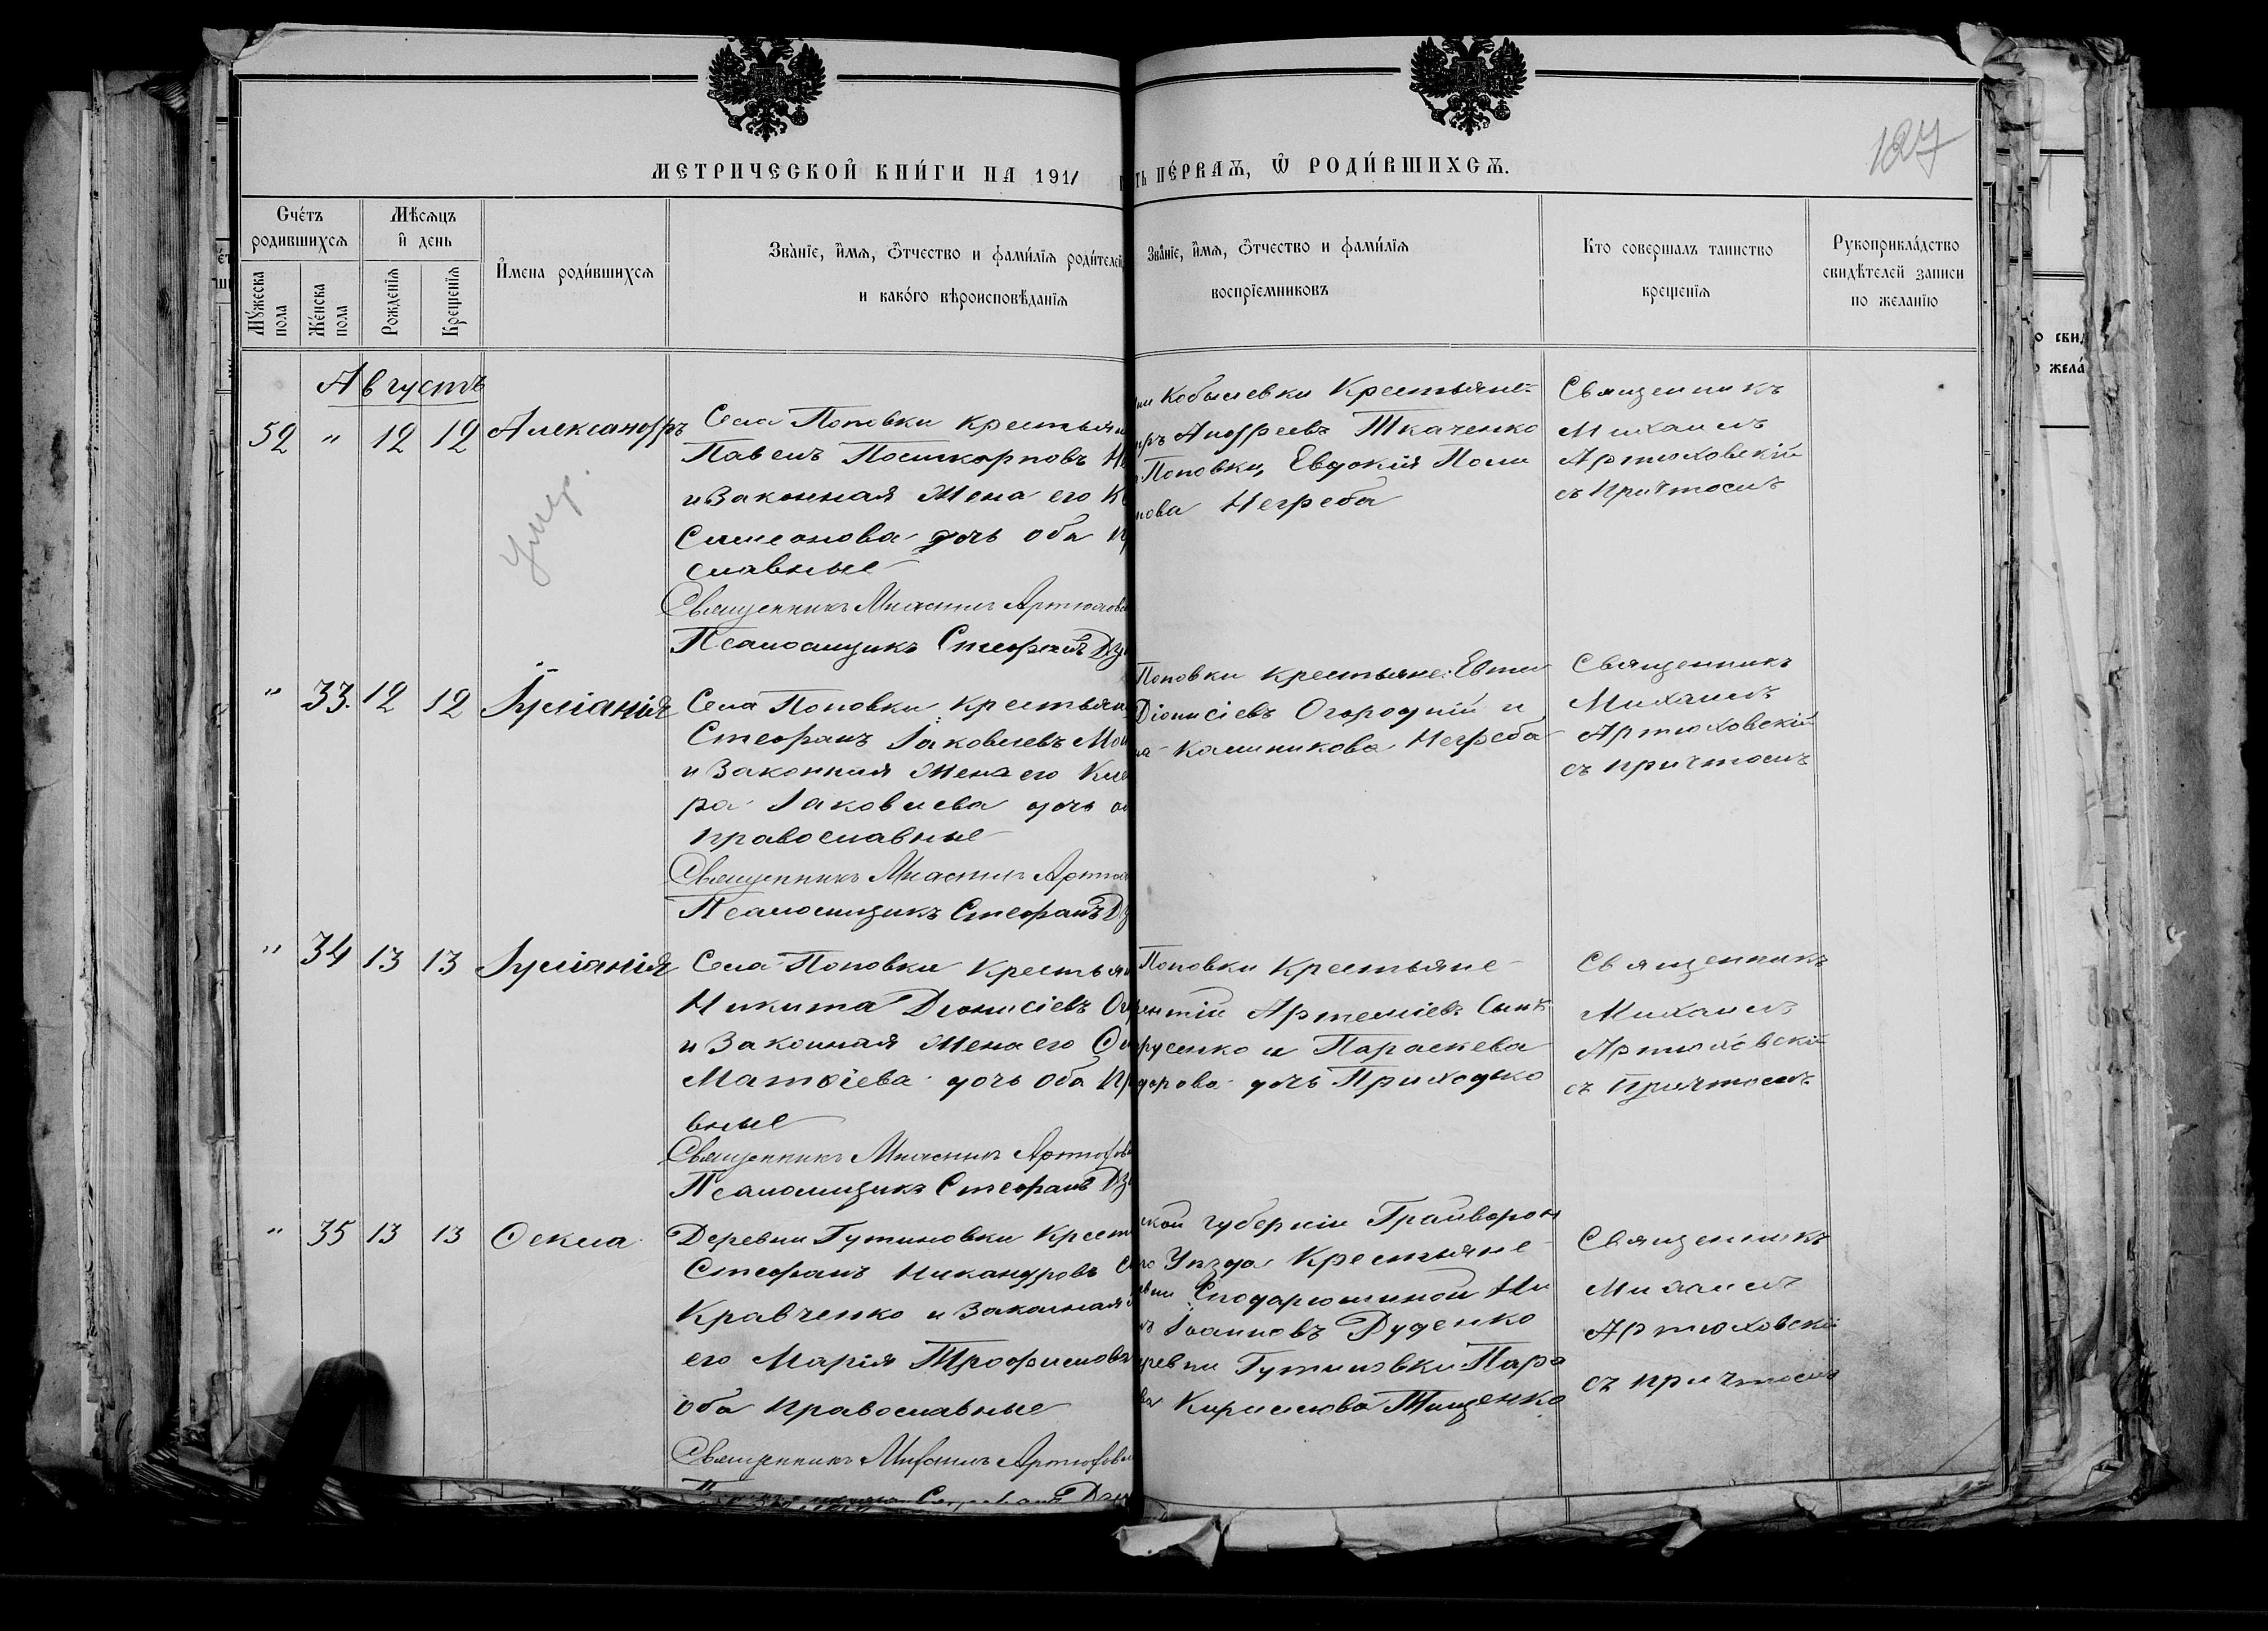 МЕТРИЧЕСКОЙ КНИ́ГИ НА 1911
ть ПЕ́РВАѦ, Ѿ РОДИ́ВШИХСѦ.
127
Счéтъ родившихсѧ
Мѣсѧцъ и день
Мȣ́жеска пола
Жéнска пола
Рожденїѧ
Крещенїѧ
И҆мена роди́вшихсѧ
Зва́нїе, и҆́мѧ, ѻ҆́тчество и фами́лїѧ роди́телей,
и како́го вѣроисповѣ́данїѧ
Зва́нїе, и҆́мѧ, ѻ҆́тчество и фами́лїѧ
воспрїемниковъ
Кто совершалъ таинство
крещенїѧ
Рукоприкла́дство
свидѣ́телей записи
по желанїю
Августъ
52 " 12 12 Александръ
Умер.
Села Поповки крестьян
Павелъ Поликарповъ Не
и Законная Жена его К
Симеонова дочь оба п
славные
Священникъ Михаилъ Артюхов
Псаломщикъ Стефанъ Дз
Кобылевки Крестьяне
Андреевъ Ткаченко
Поповки, Евдокія Поли
нова Негреба
Священникъ
Михаилъ
Артюховскій
съ Причтомъ
" 33. 12 12 Іуліанія
Села Поповки крестьян
Стефанъ Іаковлевъ Мо
и Законная Жена его Кле
ра Іаковлева дочь о
православные
Священникъ Михаилъ Артюх
Псаломщикъ Стефанъ Дз
Поповки крестьяне: Евти
Діонисіевъ Огородній и
на Калиникова Негреба
Священникъ
Михаилъ
Артюховскій
съ причтомъ
" 34 13 13 Іуліанія
Села Поповки Крестьян
Никита Діонисіевъ Ог
и Законная Жена его
Матѳіева дочь оба пр
вные
Священникъ Михаилъ Артюхов
Псаломщикъ Стефанъ Дз
Поповки Крестьяне
ентій Артеміевъ Сынъ
русенко и Параскева
дорова дочь Приходько
Священникъ
Михаилъ
Артюховскій
съ Причтомъ
" 35 13 13 Ѳекла
Деревни Гутиновки Крест
Стефанъ Никандровъ
Кравченко и Законная
его Марія Трофимова
оба Православные
Священникъ Михаилъ Артюхов
ской губерніи Грайворон
го Уѣзда Крестьяне
Господарюшиной Ни
Іоанновъ Дуденко
ревни Гутиновки Пара
ва Кириллова Тищенко
Священникъ
Михаилъ
Артюховскій
съ причтомъ